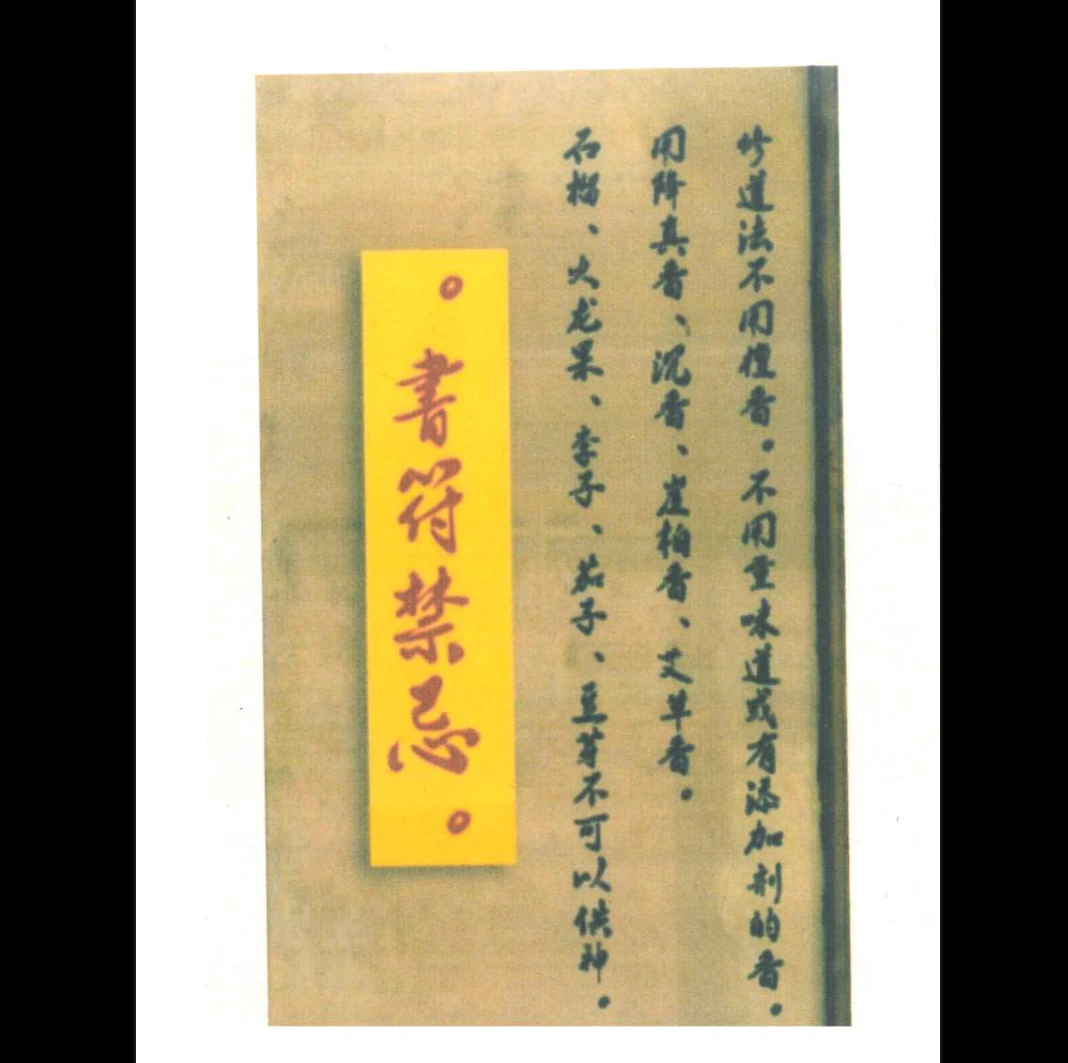 修道法不用檀香。不用重味道或有添加剂的香。
用降真香、沉香、崖柏香、艾草香。
石榴、火龙果、李子、茄子、豆芽不可以供神。
。書符禁忌。